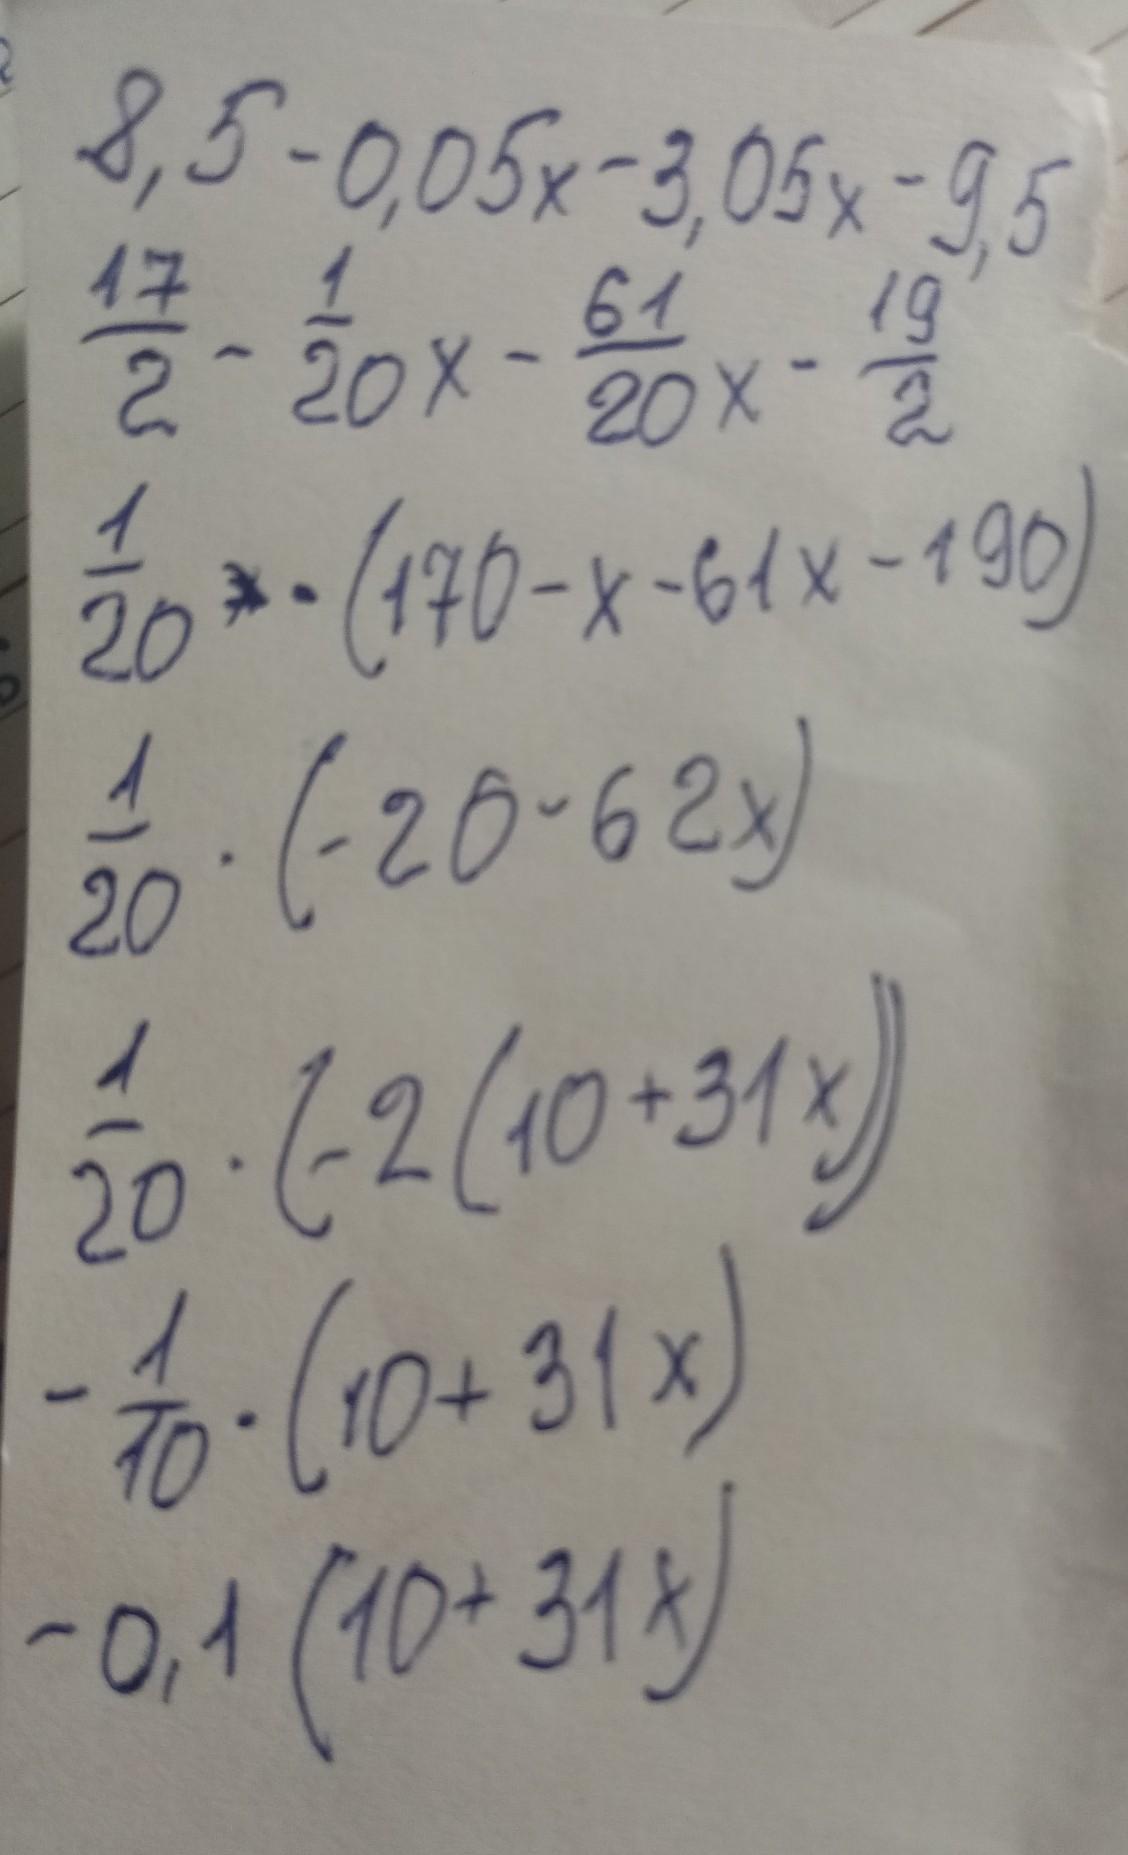 8,5 - 0,05x - 3,05x - 9,5
17/2 - 1/20 x - 61/20 x - 19/2
1/20 · (170 - x - 61x - 190)
1/20 · (-20 - 62x)
1/20 · (-2(10 + 31x))
-1/10 · (10 + 31x)
-0,1(10 + 31x)